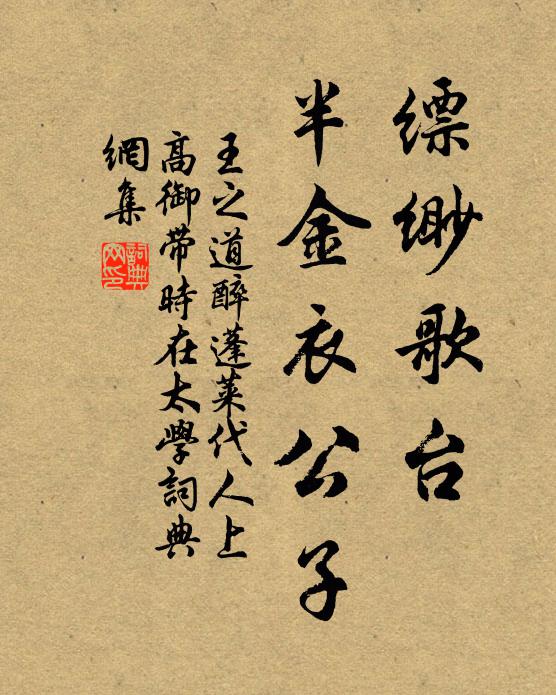 缥缈歌台
半金衣公子
王之道醉蓬萊代人上
高御带時在太學詞典
網集
詞典
网印